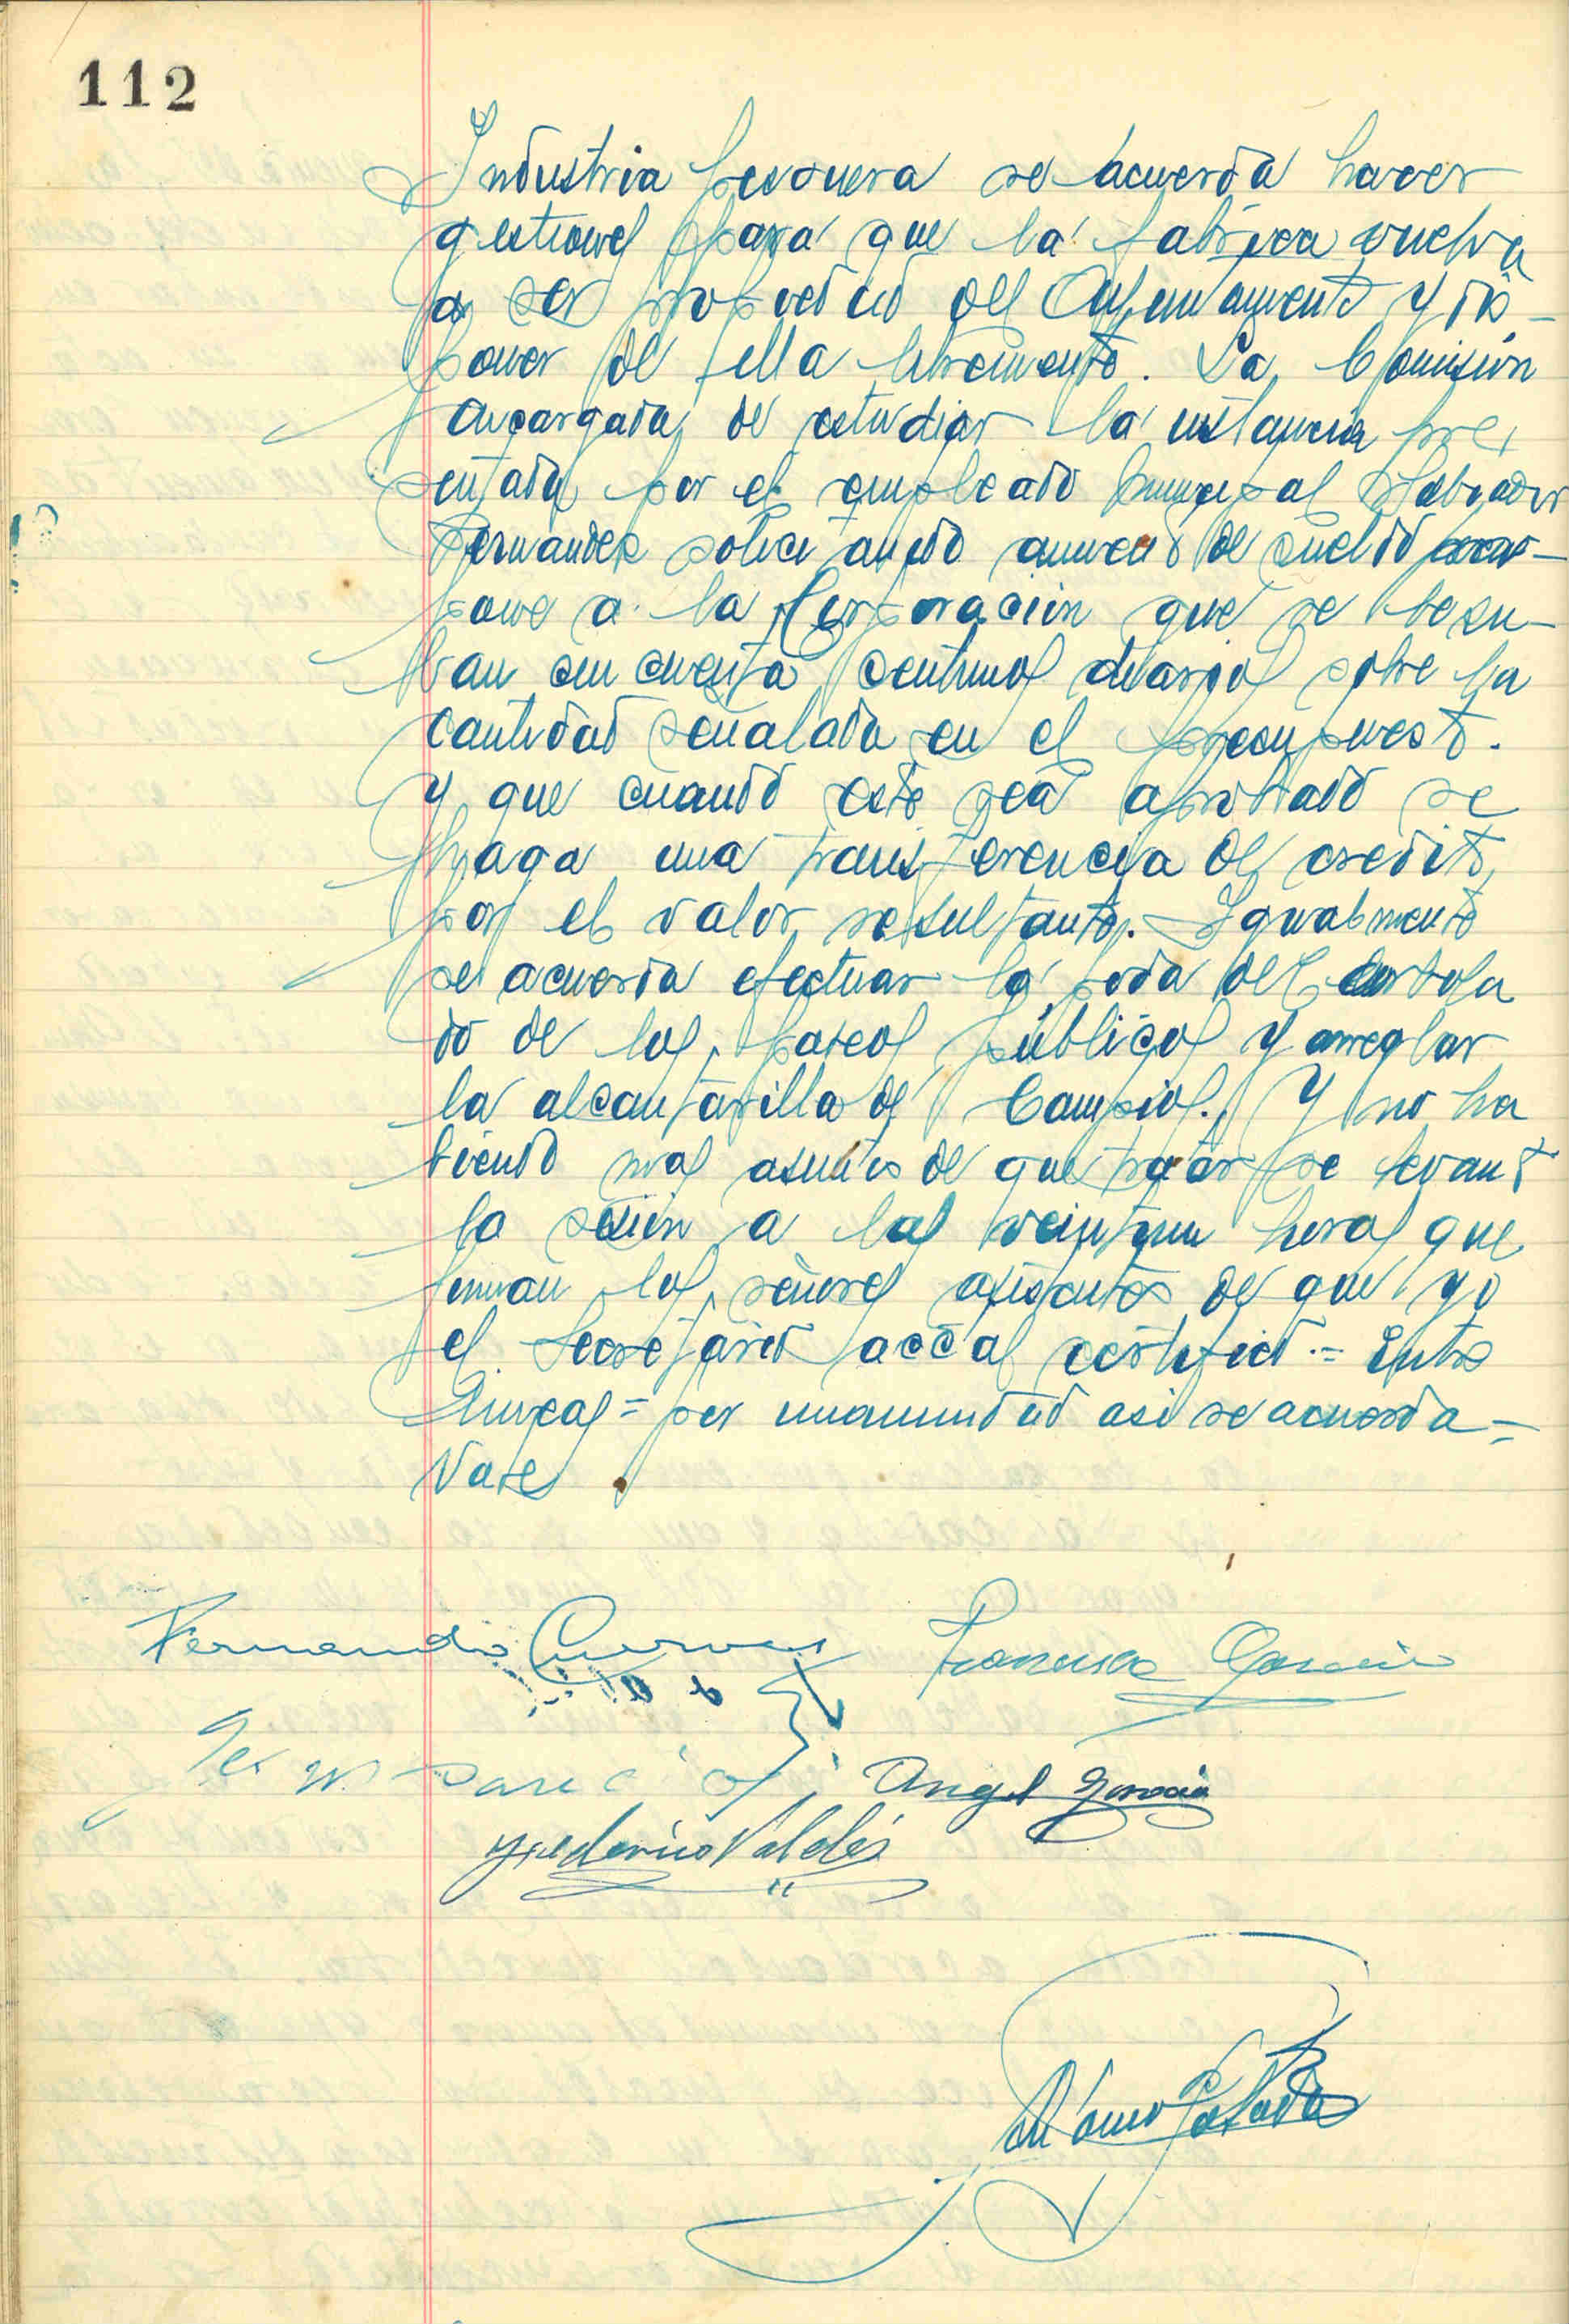 112
Industria pesquera se acuerda hacer
gestiones para que la fabrica vuelva
a ser propiedad del Ayuntamiento y dis-
poner de ella libremente. La Comisión
encargada de estudiar la instancia pre
sentada por el empleado municipal Salvador
Fernandez solicitando aumento de sueldo pro-
pone a la Corporación que se le su-
ban cincuenta centimos diarios sobre la
cantidad señalada en el presupuesto.
Y que cuando este sea aprobado se
haga una transferencia de credito
por el valor resultante. Igualmente
se acuerda efectuar la poda del arbola
do de los paseos públicos y arreglar
la alcantarilla de Campios. Y no ha
biendo mas asuntos de que tratar se levanta
la sesión a las veintiuna horas que
firman los señores asistentes de que yo
el Secretario accal certifico.= Entre
lineas= por unanimidad asi se acuerda=
Vale
Fernando Cuervas Francisco Garcia
Angel Garcia
Federico Valdés